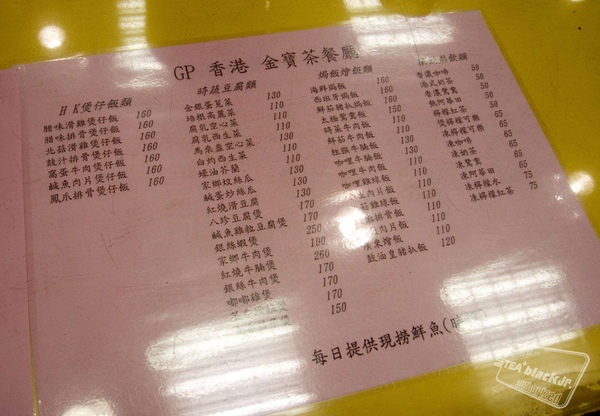 GP 香港 金寶茶餐廳
HK煲仔飯類
臘味滑雞煲仔飯 160
臘味排骨煲仔飯 160
北菇滑雞煲仔飯 160
豉汁排骨煲仔飯 160
窩蛋牛肉煲仔飯 160
鹹魚肉片煲仔飯 160
鳳爪排骨煲仔飯 160
時蔬豆腐類
金銀蛋莧菜 130
培根高麗菜 110
腐乳空心菜 110
腐乳西生菜 130
馬來盞空心菜 110
白灼西生菜 110
蠔油芥蘭 130
家鄉炆絲瓜 110
鹹蛋炒絲瓜 110
紅燒滑豆腐 130
八珍豆腐煲 170
鹹魚雞粒豆腐煲 170
銀絲蝦煲 250
家鄉牛肉煲 190
紅燒牛腩煲 260
銀絲牛肉煲 170
嘟嘟雞煲 170
170
150
焗飯燴飯類
海鮮焗飯 160
西班牙焗飯 160
鮮茄豬扒焗飯 160
太極鴛鴦飯 150
時菜牛肉飯 110
鮮茄牛肉飯 110
柱侯牛腩飯 110
咖哩牛腩飯 110
咖哩牛肉飯 110
咖哩雞球飯 110
肉片飯 110
雞球飯 110
排骨飯 110
肉片飯 110
燴飯 110
豉油皇豬扒飯 120
熱飲類
香濃咖啡 50
港式奶茶 50
香濃鴛鴦 50
熱阿華田 50
檸檬紅茶 50
煲檸檬可樂 65
凍檸檬可樂 65
凍咖啡 65
凍奶茶 65
凍鴛鴦 65
凍阿華田 65
凍檸檬水 75
凍檸檬紅茶 75
每日提供現撈鮮魚(時
TEA blackJr.